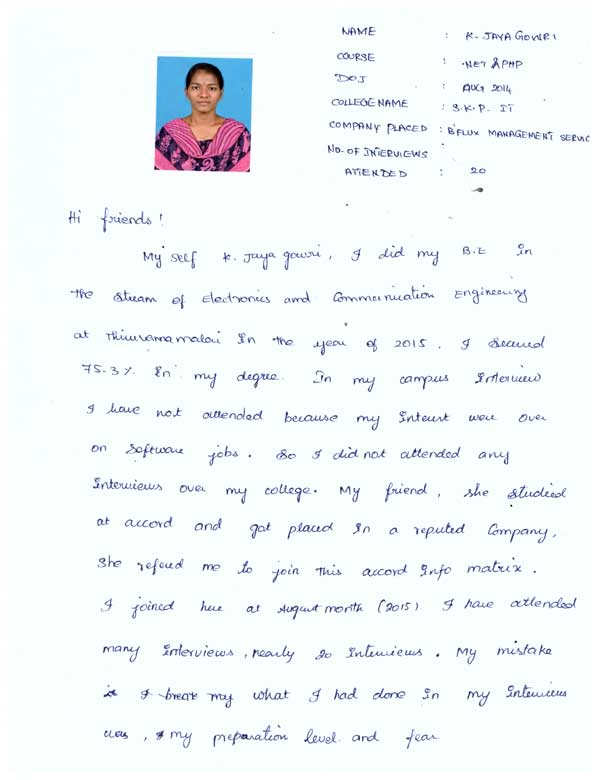 NAME : K. JAYA GOWRI
COURSE : .NET & PHP
DOJ : AUG 2014
COLLEGE NAME : S.K.P. IT
COMPANY PLACED : B'FLUX MANAGEMENT SERVIC
NO. OF INTERVIEWS
ATTENDED : 20
Hi friends!
My self K. Jaya gowri, I did my B.E in
the stream of Electronics and Communication Engineering
at Thiruvannamalai In the year of 2015. I secured
75.3%. In my degree. In my campus Interview
I have not attended because my Interest were over
on Software jobs. So I did not attended any
Interviews over my college. My friend, she studied
at accord and got placed In a reputed Company,
She refered me to join this accord Info matrix.
I joined here at August month (2015). I have attended
many Interviews, nearly 20 Interviews. My mistake
is I break my what I had done In my Interviews
was, my preparation level and fear